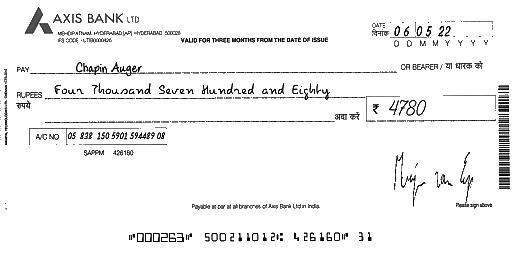 AXIS BANK LTD
MEHDIPATNAM, HYDERABAD [AP] HYDERABAD 500028
IFS CODE - UTIB0000426
VALID FOR THREE MONTHS FROM THE DATE OF ISSUE
DATE
दिनांक
06 05 22
D D M M Y Y Y Y
PAY Chapin Auger OR BEARER / या धारक को
RUPEES Four Thousand Seven Hundred and Eighty
रुपये अदा करें ₹ 4780
A/C NO 05 838 150 5901 594489 08
SAPPM 426160
Payable at par at all branches of Axis Bank Ltd in India.
Please sign above
"000263" 500211012: 426160" 31